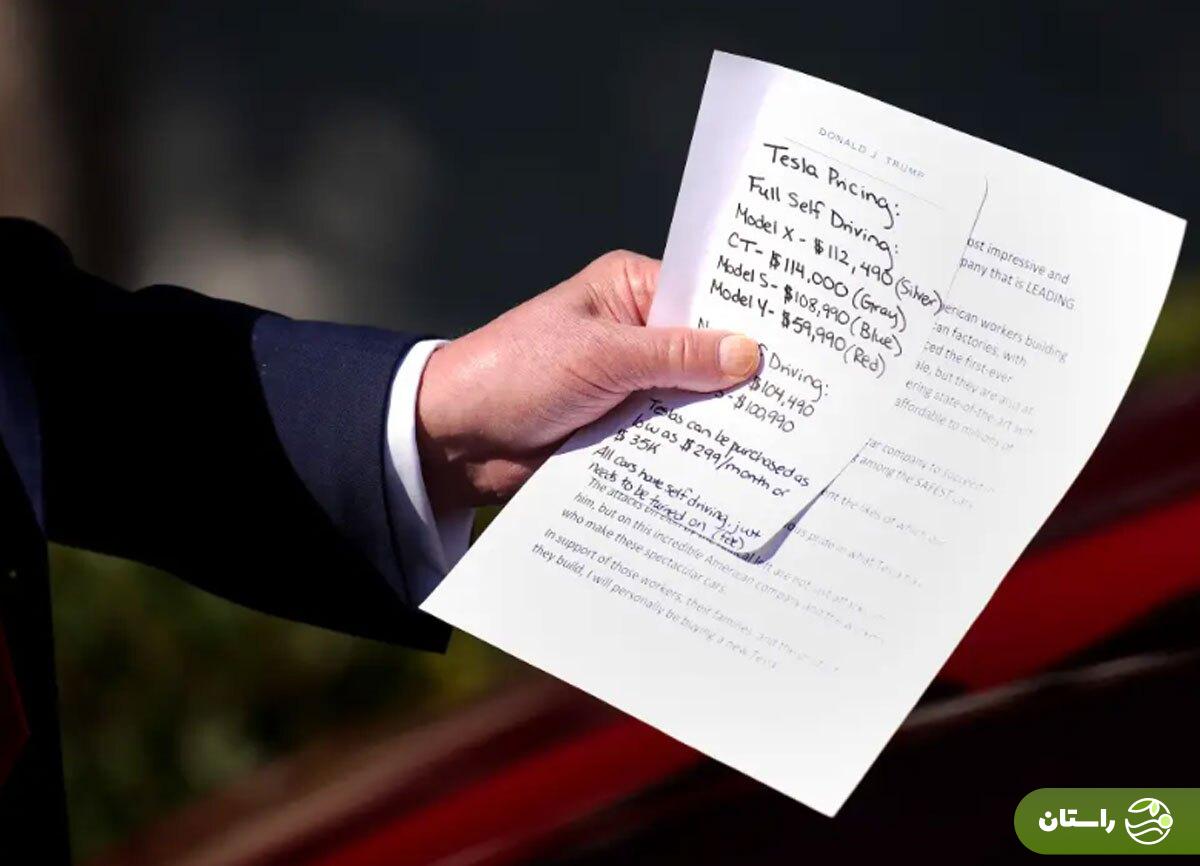 DONALD J. TRUMP
Tesla Pricing:
Full Self Driving:
Model X - $112,490 (Silver)
CT - $114,000 (Gray)
Model S - $108,990 (Blue)
Model Y - $59,990 (Red)
Driving:
$104,490
- $100,990
Teslas can be purchased as
low as $299/month or
$35K
All cars have self driving, just
needs to be turned on (fee)
ost impressive and
pany that is LEADING
erican workers building
an factories, with
ped the first-ever
ale, but they are also at
ering state-of-the-art self
affordable to millions of
ar company to succeed in
among the SAFEST cars
nt the likes of which our
pride in what Tesla has
The attacks on are not just attacks on
him, but on this incredible American company and the workers
who make these spectacular cars.
In support of those workers, their families, and the
they build, I will personally be buying a new Tesla
راستان